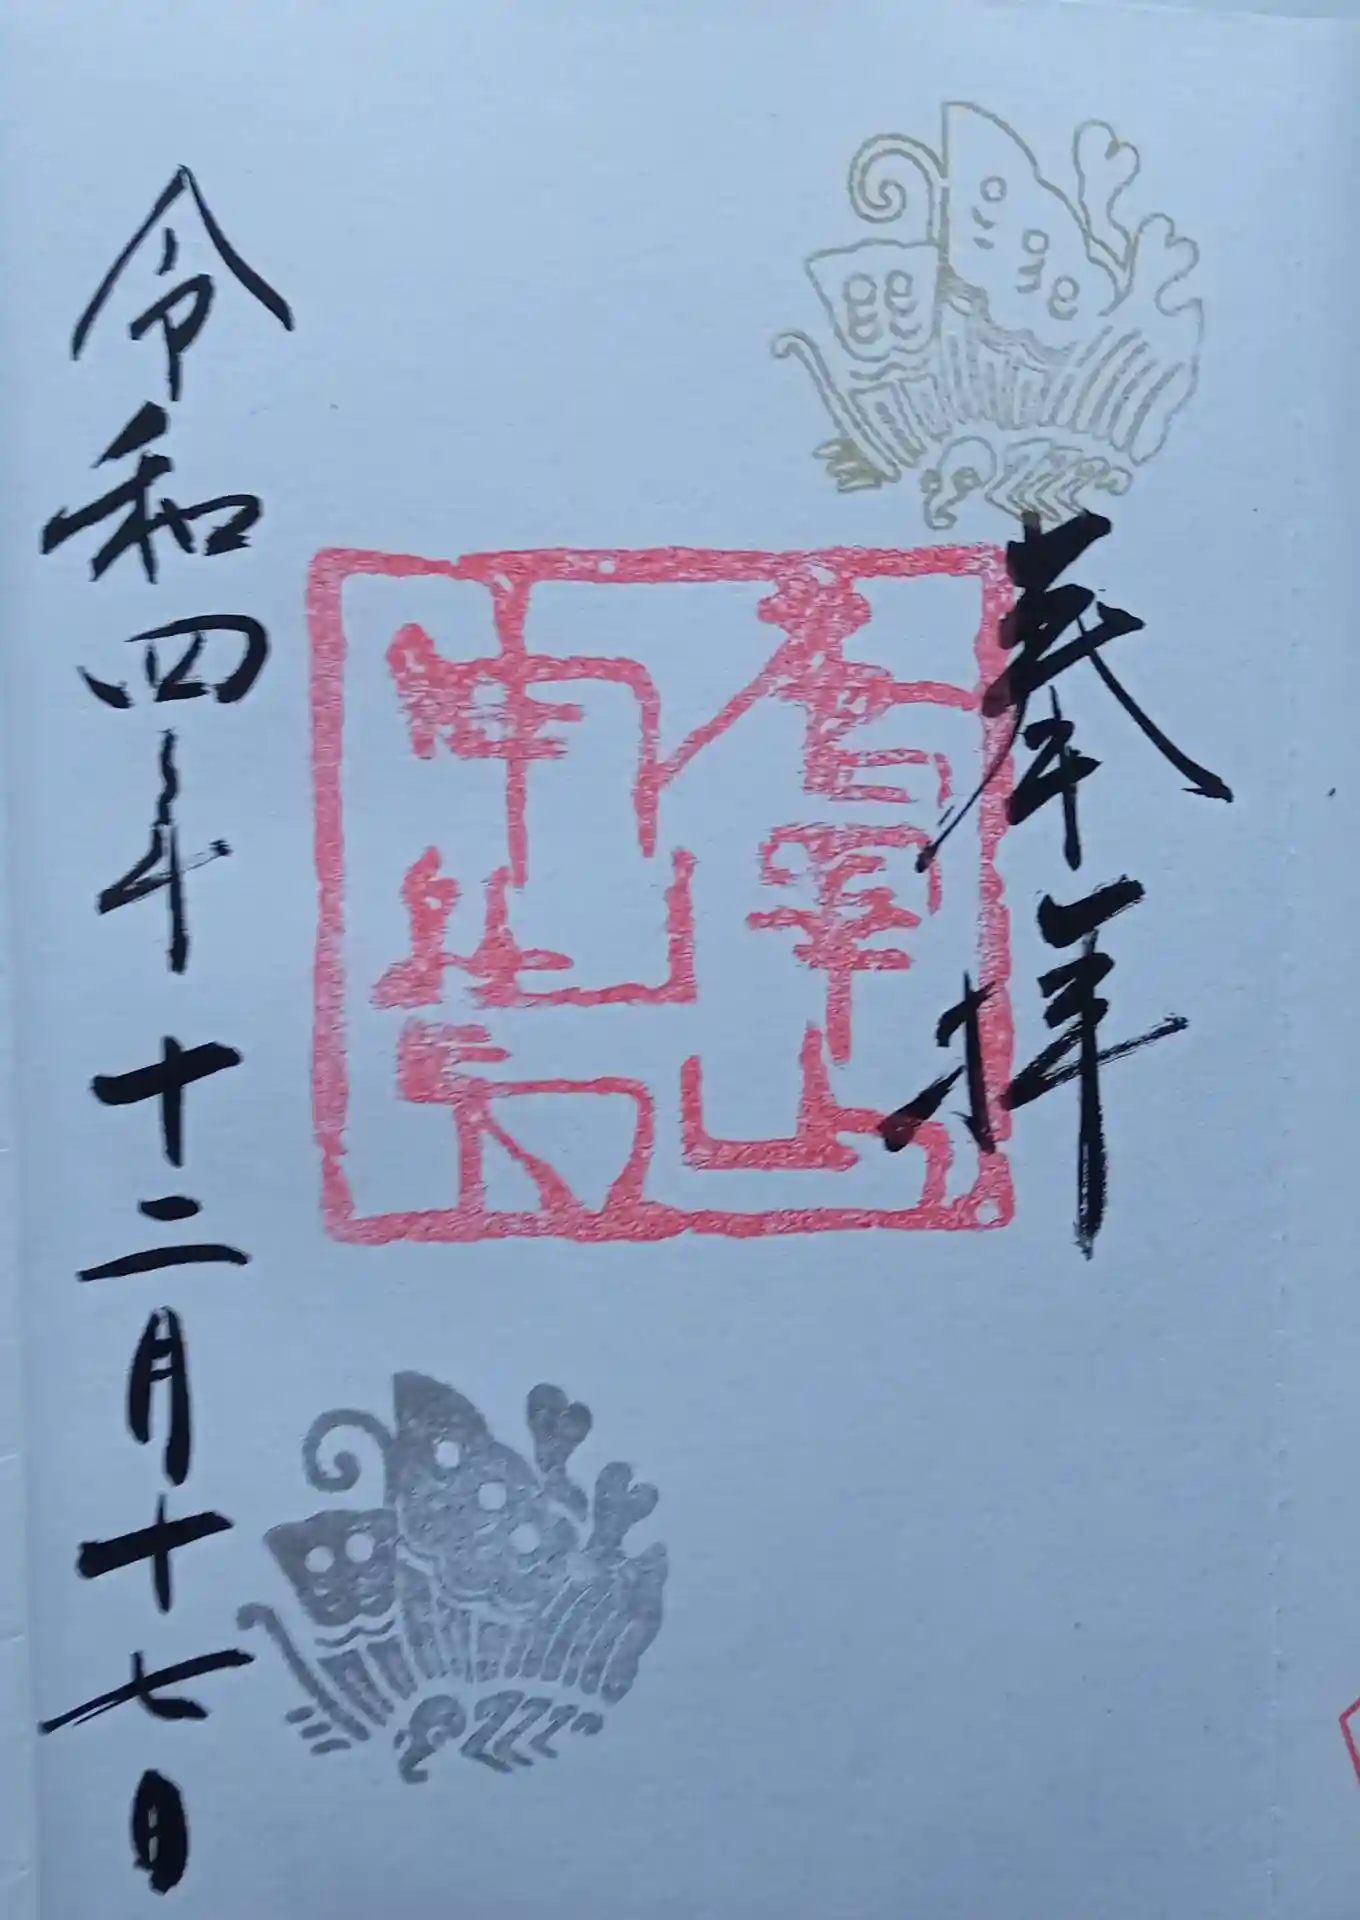 奉拝
令和四年十二月十七日